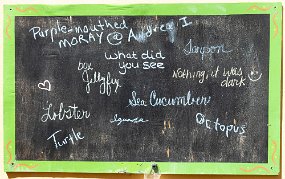 Purple-mouthed
MORAY @ Andrea I
What did
you see
Tarpon
box
Jellyfish
Nothing, it was
dark
Sea Cucumber
Lobster
Iguana
Octopus
Turtle